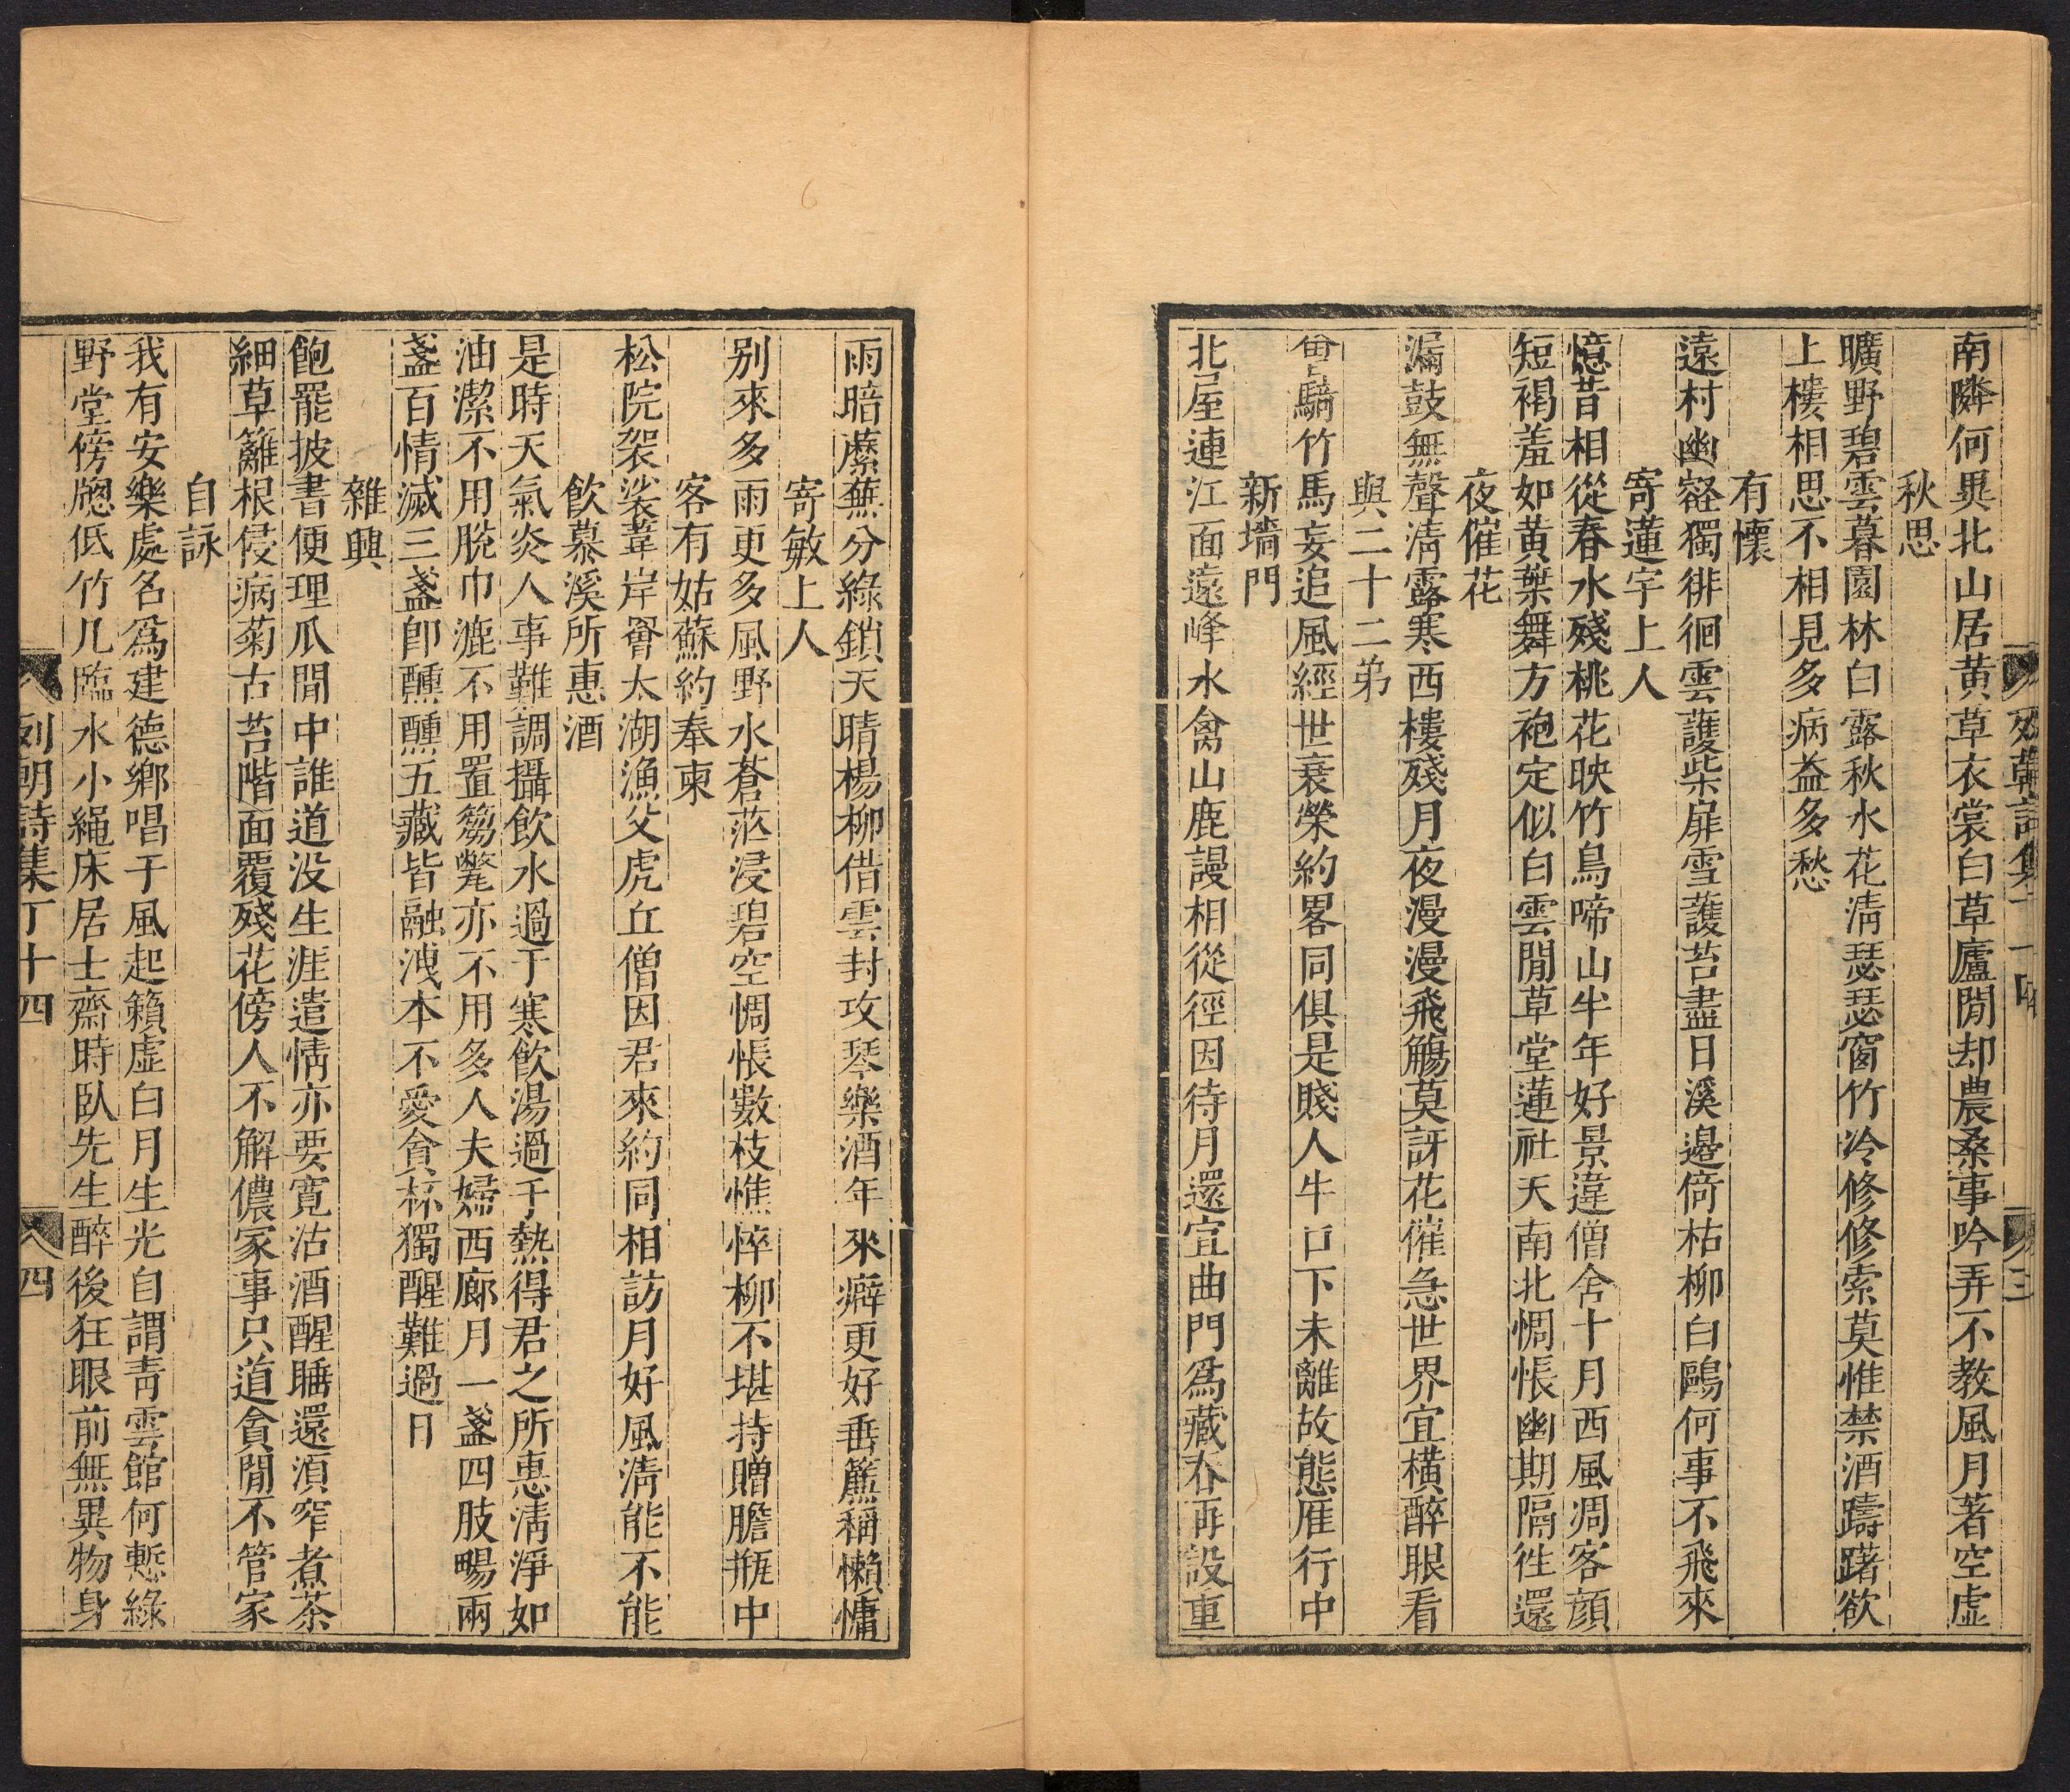 南隣何異北山居黄草衣裳白草廬閒却農桑事吟弄不教風月著空虚
秋思
曠野碧雲暮園林白露秋水花清瑟瑟窗竹冷修修索莫惟禁酒躊躇欲
上樓相思不相見多病益多愁
有懷
遠村幽窓獨徘徊雲護柴扉雪護苔盡日溪邊倚枯柳白鷗何事不飛來
寄蓮宇上人
憶昔相從春水殘桃花映竹鳥啼山半年好景違僧舍十月西風凋客顔
短褐羞如黄葉舞方袍定似白雲閒草堂蓮社天南北惆悵幽期隔徃還
夜催花
漏鼓無聲清露寒西樓殘月夜漫漫飛觴莫訝花催急世界宜横醉眼看
與二十二弟
曾騎竹馬妄追風經世衰榮約畧同俱是賤人牛口下未離故態雁行中
新墻門
北屋連江面遠峰水禽山鹿謾相從徑因待月還宜曲門爲藏春再設重
雨暗蘪蕪分緑鎖天晴楊柳借雲封攻琴樂酒年來癖更好垂簾稱懶慵
寄敏上人
别來多雨更多風野水蒼茫浸碧空惆悵數枝憔悴柳不堪持贈膽瓶中
客有姑蘇約奉柬
松院袈裟葦岸罾太湖漁父虎丘僧因君來約同相訪月好風清能不能
飲慕溪所惠酒
是時天氣炎人事難調攝飲水過于寒飲湯過于熱得君之所惠清淨如
油潔不用脱巾漉不用置篘甃亦不用多人夫婦西廊月一盞四肢暢兩
盞百情滅三盞卽醺醺五藏皆融洩本不愛貪杯獨醒難過日
雜興
飽罷披書便理瓜閒中誰道没生涯遣情亦要寛沽酒醒睡還須窄煮茶
細草籬根侵病菊古苔階面覆殘花傍人不解儂家事只道貪閒不管家
自詠
我有安樂處名爲建德鄉唱于風起籟虚白月生光自謂青雲館何慙緑
野堂傍牕低竹几臨水小繩床居士齋時臥先生醉後狂眼前無異物身
列朝詩集丁十四
四